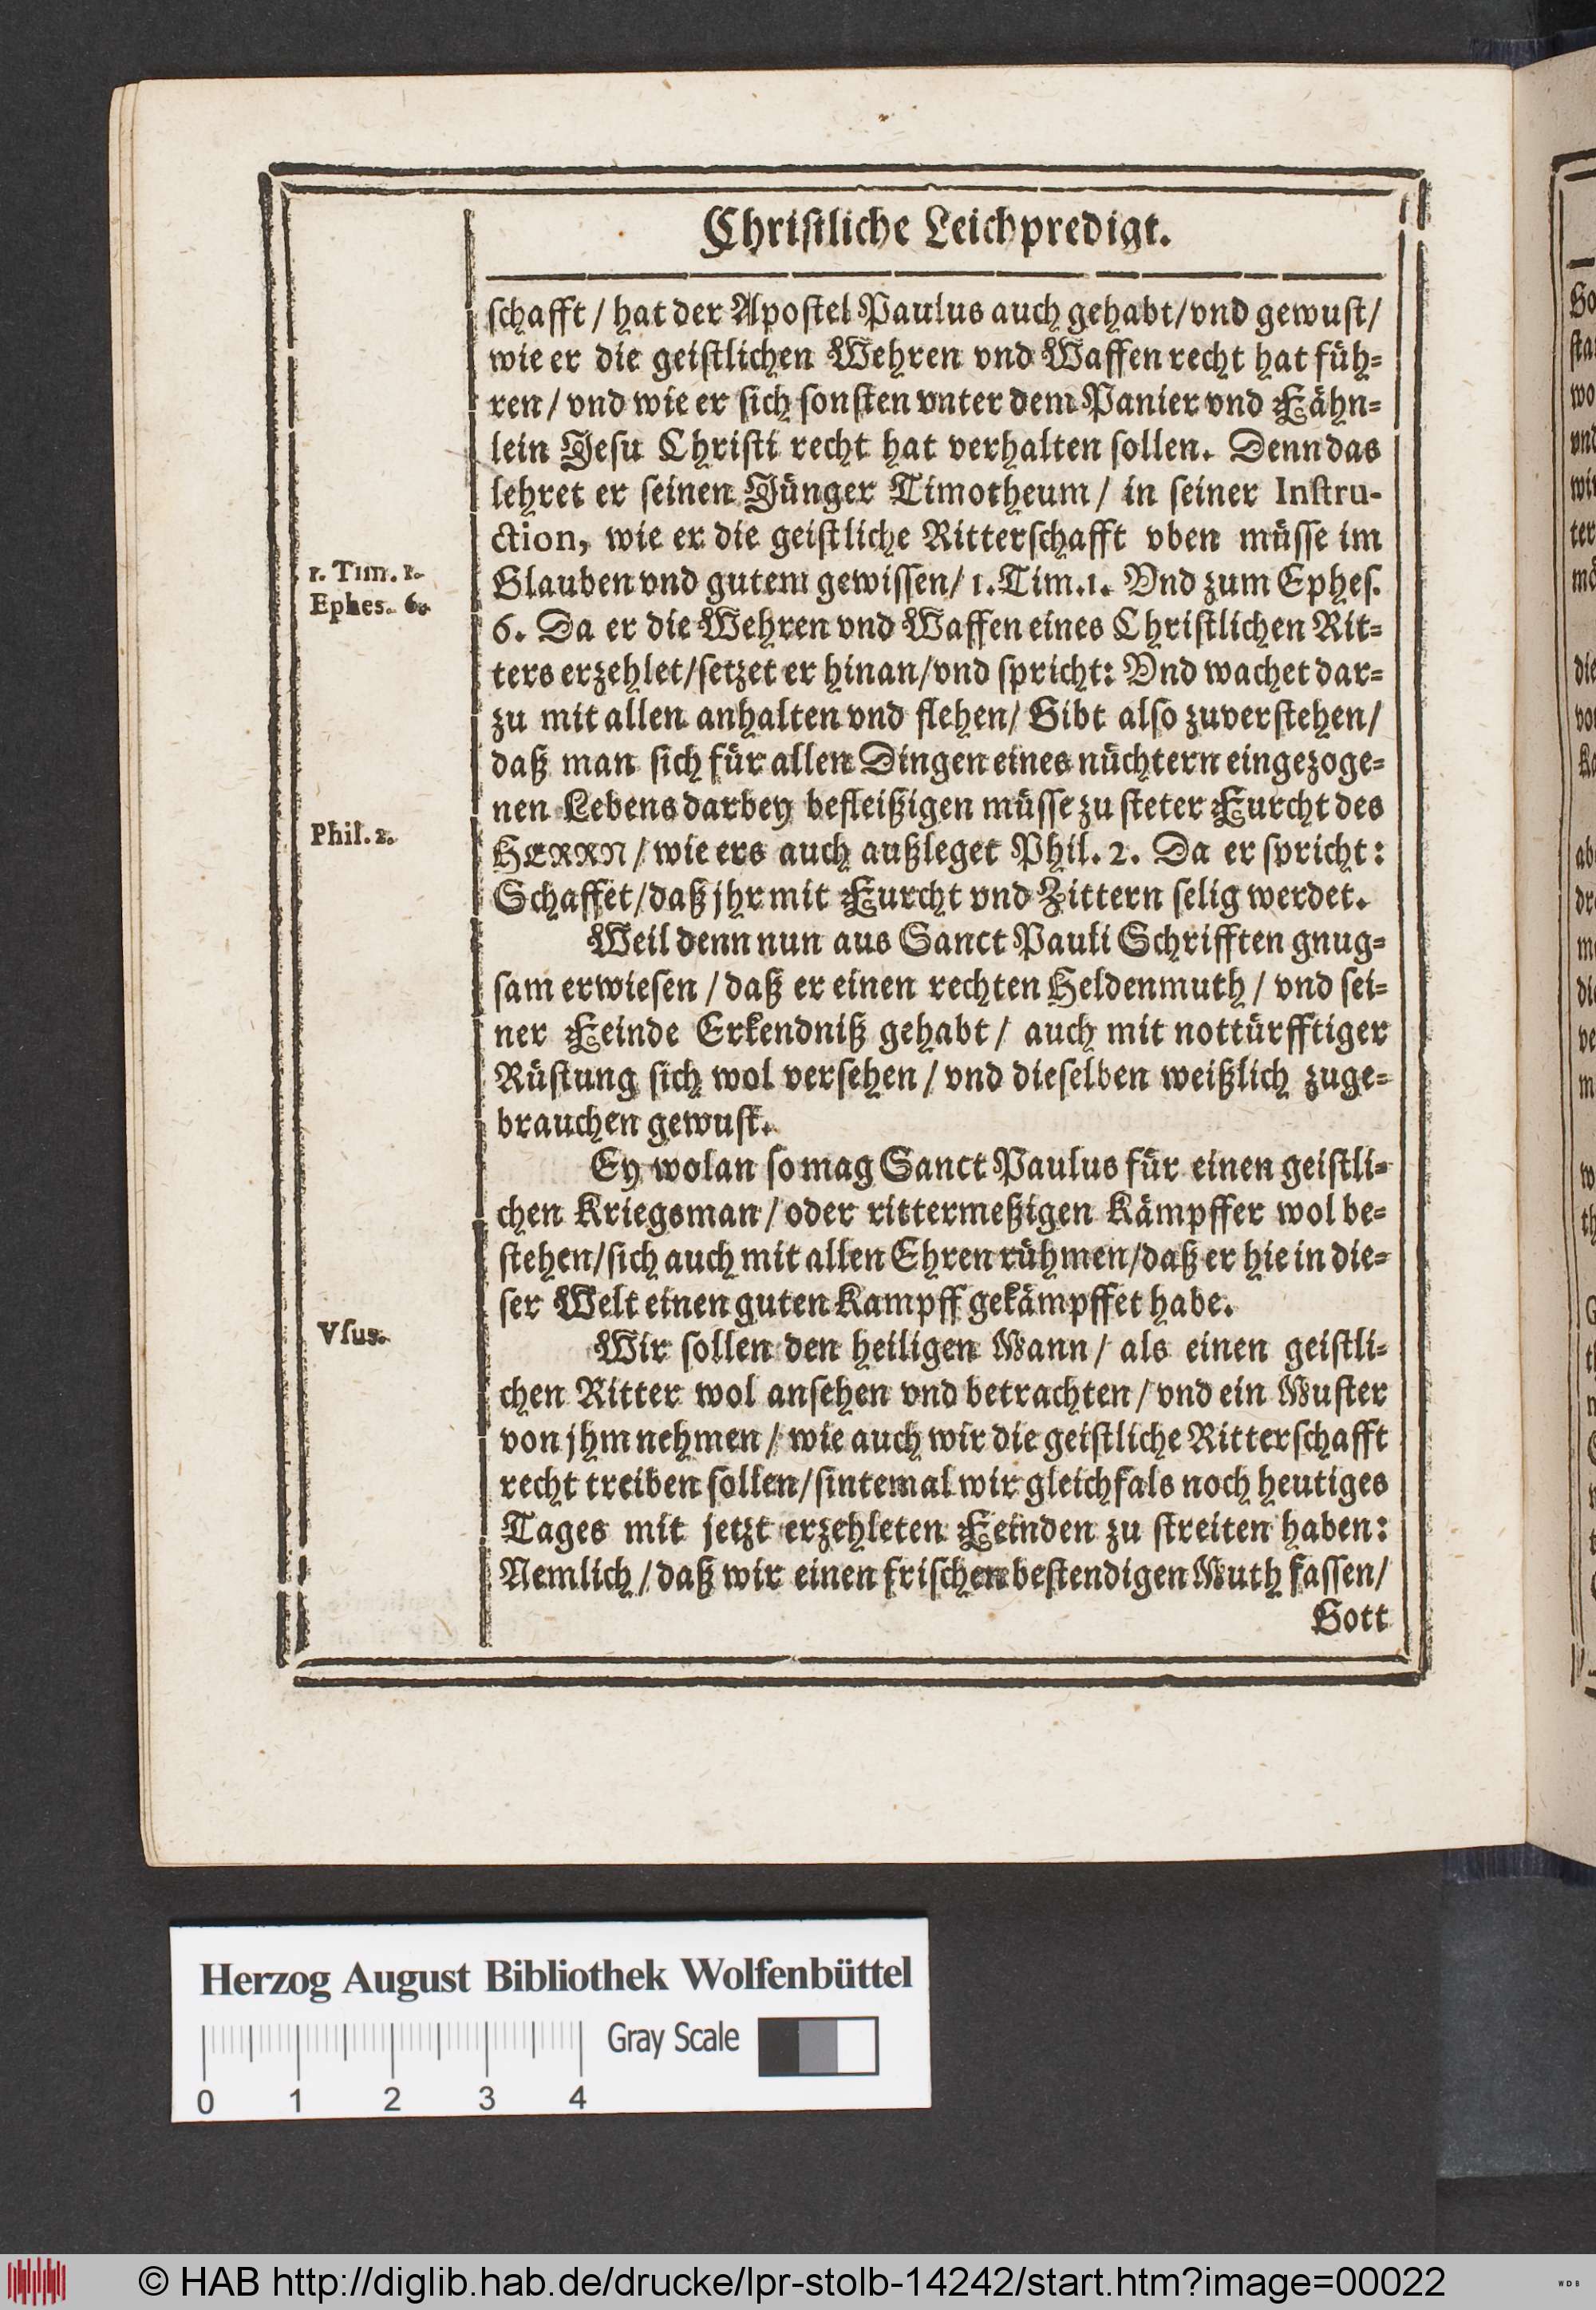 Christliche Leichpredigt.
schafft / hat der Apostel Paulus auch gehabt/vnd gewust/
wie er die geistlichen Wehren vnd Waffen recht hat füh-
ren / vnd wie er sich sonsten vnter dem Panier vnd Fähn-
lein Jesu Christi recht hat verhalten sollen. Denn das
lehret er seinen Jünger Timotheum / in seiner Instru-
ction, wie er die geistliche Ritterschafft vben müsse im
1. Tim. 1.
Glauben vnd gutem gewissen/ 1. Tim. 1. Vnd zum Ephes.
Ephes. 6.
6. Da er die Wehren vnd Waffen eines Christlichen Rit-
ters erzehlet/setzet er hinan/vnd spricht: Vnd wachet dar-
zu mit allen anhalten vnd flehen/ Gibt also zuverstehen/
daß man sich für allen Dingen eines nüchtern eingezoge-
nen Lebens darbey befleißigen müsse zu steter Furcht des
Phil. 2.
HERRN / wie ers auch außleget Phil. 2. Da er spricht:
Schaffet/daß jhr mit Furcht vnd Zittern selig werdet.
Weil denn nun aus Sanct Pauli Schrifften gnug-
sam erwiesen / daß er einen rechten Heldenmuth / vnd sei-
ner Feinde Erkendniß gehabt / auch mit nottürfftiger
Rüstung sich wol versehen / vnd dieselben weißlich zuge-
brauchen gewust.
Ey wolan so mag Sanct Paulus für einen geistli-
chen Kriegsman / oder rittermeßigen Kämpffer wol be-
stehen/sich auch mit allen Ehren rühmen/daß er hie in die-
ser Welt einen guten Kampff gekämpffet habe.
Vsus.
Wir sollen den heiligen Mann / als einen geistli-
chen Ritter wol ansehen vnd betrachten / vnd ein Muster
von jhm nehmen / wie auch wir die geistliche Ritterschafft
recht treiben sollen/sintemal wir gleichfals noch heutiges
Tages mit jetzt erzehleten Feinden zu streiten haben:
Nemlich / daß wir einen frischen bestendigen Muth fassen/
Gott
Herzog August Bibliothek Wolfenbüttel
Gray Scale
0 1 2 3 4
© HAB http://diglib.hab.de/drucke/lpr-stolb-14242/start.htm?image=00022
WDB